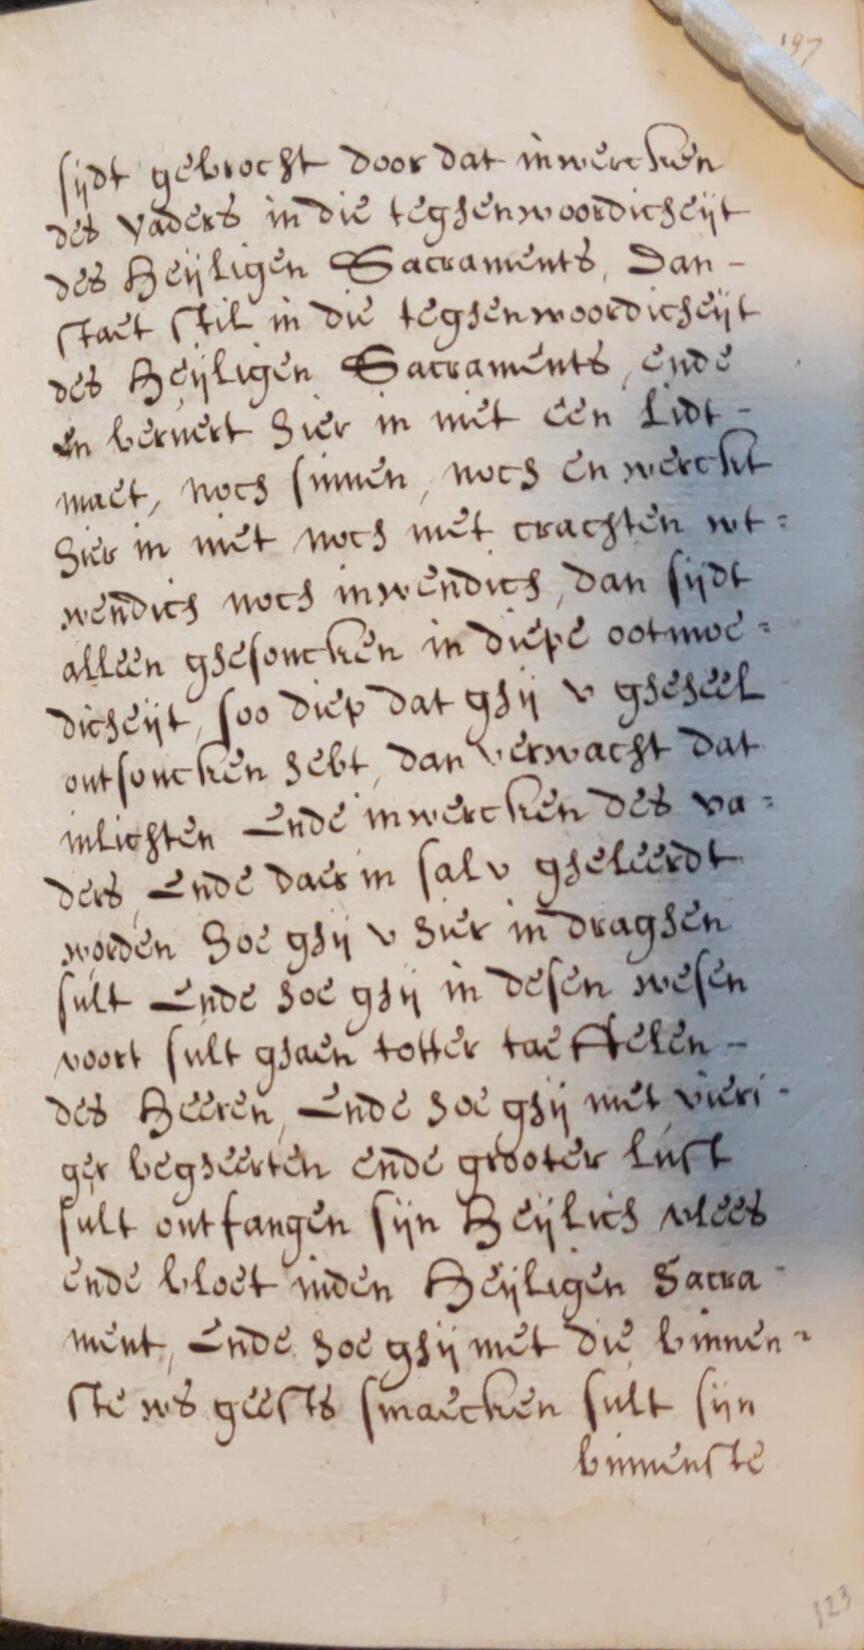 197
sijdt gebrocht door dat inwercken
des vaders in die teghenwoordicheijt
des Heijligen Sacraments, Dan -
staet stil in die teghenwoordicheijt
des Heijligen Sacraments, ende
en beruert hier in niet een Lidt -
maet, noch sinnen, noch en werckt
hier in niet noch met crachten wt =
wendich noch inwendich, dan sijdt
alleen ghesoncken in diepe ootmoe =
dicheijt, soo diep dat ghij v gheheel
ontsoncken hebt, dan verwacht dat
inlichten Ende inwercken des va =
ders, Ende daer in sal v gheleerdt
worden hoe ghij v hier in draghen
sult Ende hoe ghij in desen wesen
voort sult ghaen totter taeffelen -
des Heeren, Ende hoe ghij met vieri -
ger begheerten ende grooter lust
sult ontfangen sijn Heijlich vlees
ende bloet inden Heijligen Sacra -
ment, Ende hoe ghij met die binnen =
ste ws geests smaecken sult sijn
binnenste
123